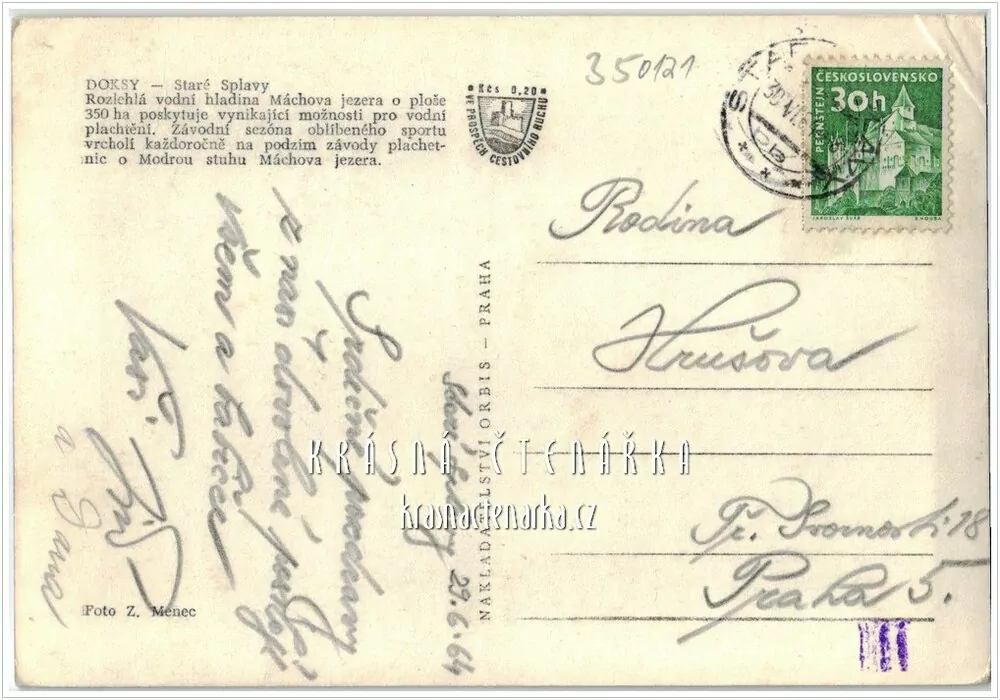 DOKSY — Staré Splavy
Rozlehlá vodní hladina Máchova jezera o ploše
350 ha poskytuje vynikající možnosti pro vodní
plachtění. Závodní sezóna oblíbeného sportu
vrcholí každoročně na podzim závody plachet-
nic o Modrou stuhu Máchova jezera.
Kčs 0,20
VE PROSPĚCH CESTOVNÍHO RUCHU
350121
ČESKOSLOVENSKO
30h
PERNŠTEJN
JAROSLAV ŠVÁB
Rodina
Hrušova
Tř. Svornosti 18
Praha 5.
NAKLADATELSTVÍ ORBIS - PRAHA
29.6.64
Srdečné pozdravy
z naší dovolené
Všem a
Vaši
a
KRÁSNÁ ČTENÁŘKA
krasnactenarka.cz
Foto Z. Menec